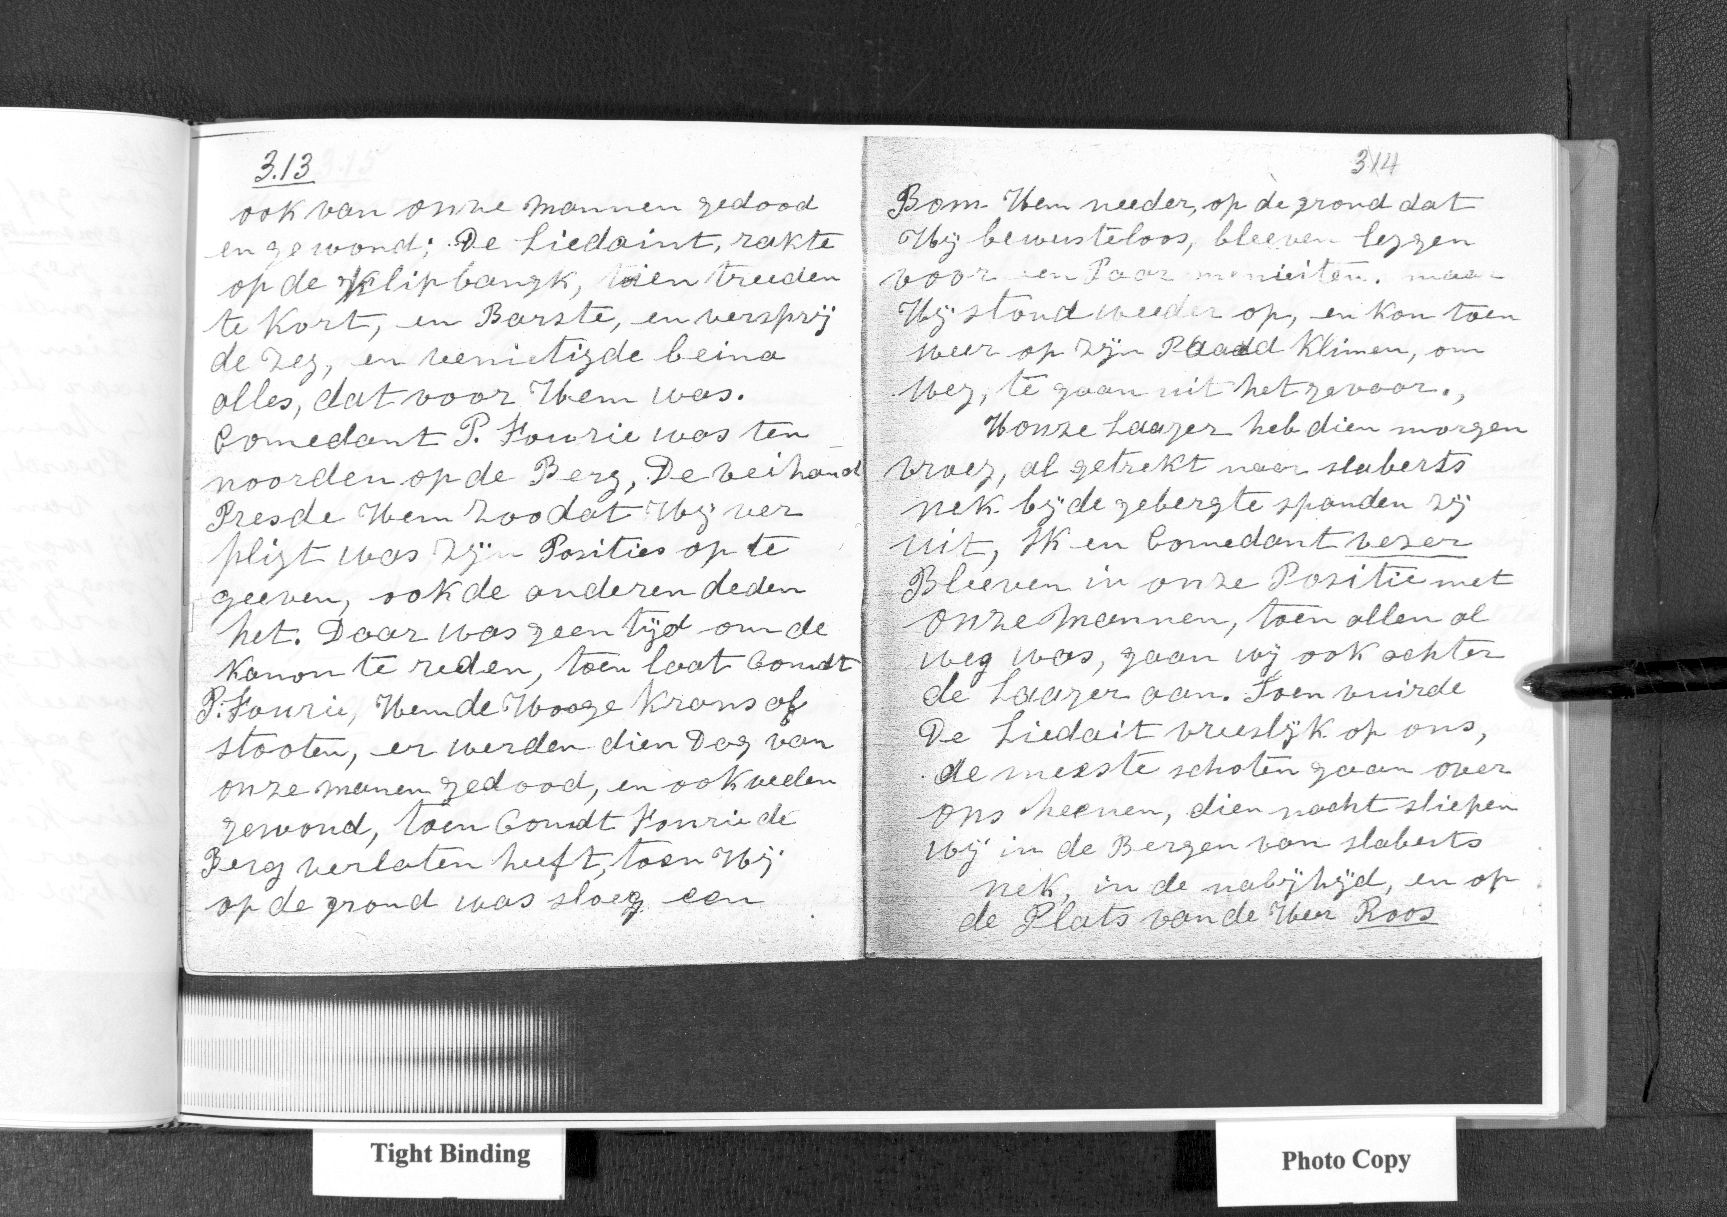 3.13
ook van onze mannen gedood
en gewond; De Liedaint, rakte
op de Klipbangk, tien treeden
te Kort, en Barste, en versprij
de zeg, en venietigde beina
alles, dat voor Hem was.
Comedant P. Fourie was ten
noorden op de Berg, De veihand
Presde Hem zoodat Hij ver
pligt was zijn Posities op te
geeven, ook de anderen deden
het. Daar was geen tijd om de
Kanon te reden, toen laat Comdt
P. Fourie, Hem de Hooge Krans af
stooten, er werden dien Dag van
onze manen gedood, en ook veelen
gewond, toen Comdt Fourie de
Berg verlaten heeft, toen Hij
op de grond was sloeg een
314
Bom Hem needer, op de grond dat
Hij bewusteloos, bleeven leggen
voor een Paar menieiten. maar
Hij stond weeder op, en Kon toen
weer op zijn Paadd Klimen, om
weg, te gaan uit het gevaar.,
Honze Laager heb dien morgen
vroeg, al getrekt naar slaberts
nek bij de gebergte spanden zij
uit, Ik en Comedant vezer
Bleeven in onze Positie met
onze Mannen, toen allen al
weg was, gaan wij ook achter
de Laager aan. Toen vuirde
De Liedait vreeslijk op ons,
de meeste schoten gaan over
ons heenen, dien nacht sliepen
wij in de Bergen van slaberts
nek, in de nabijhijd, en op
de Plats van de Heer Roos
Tight Binding
Photo Copy